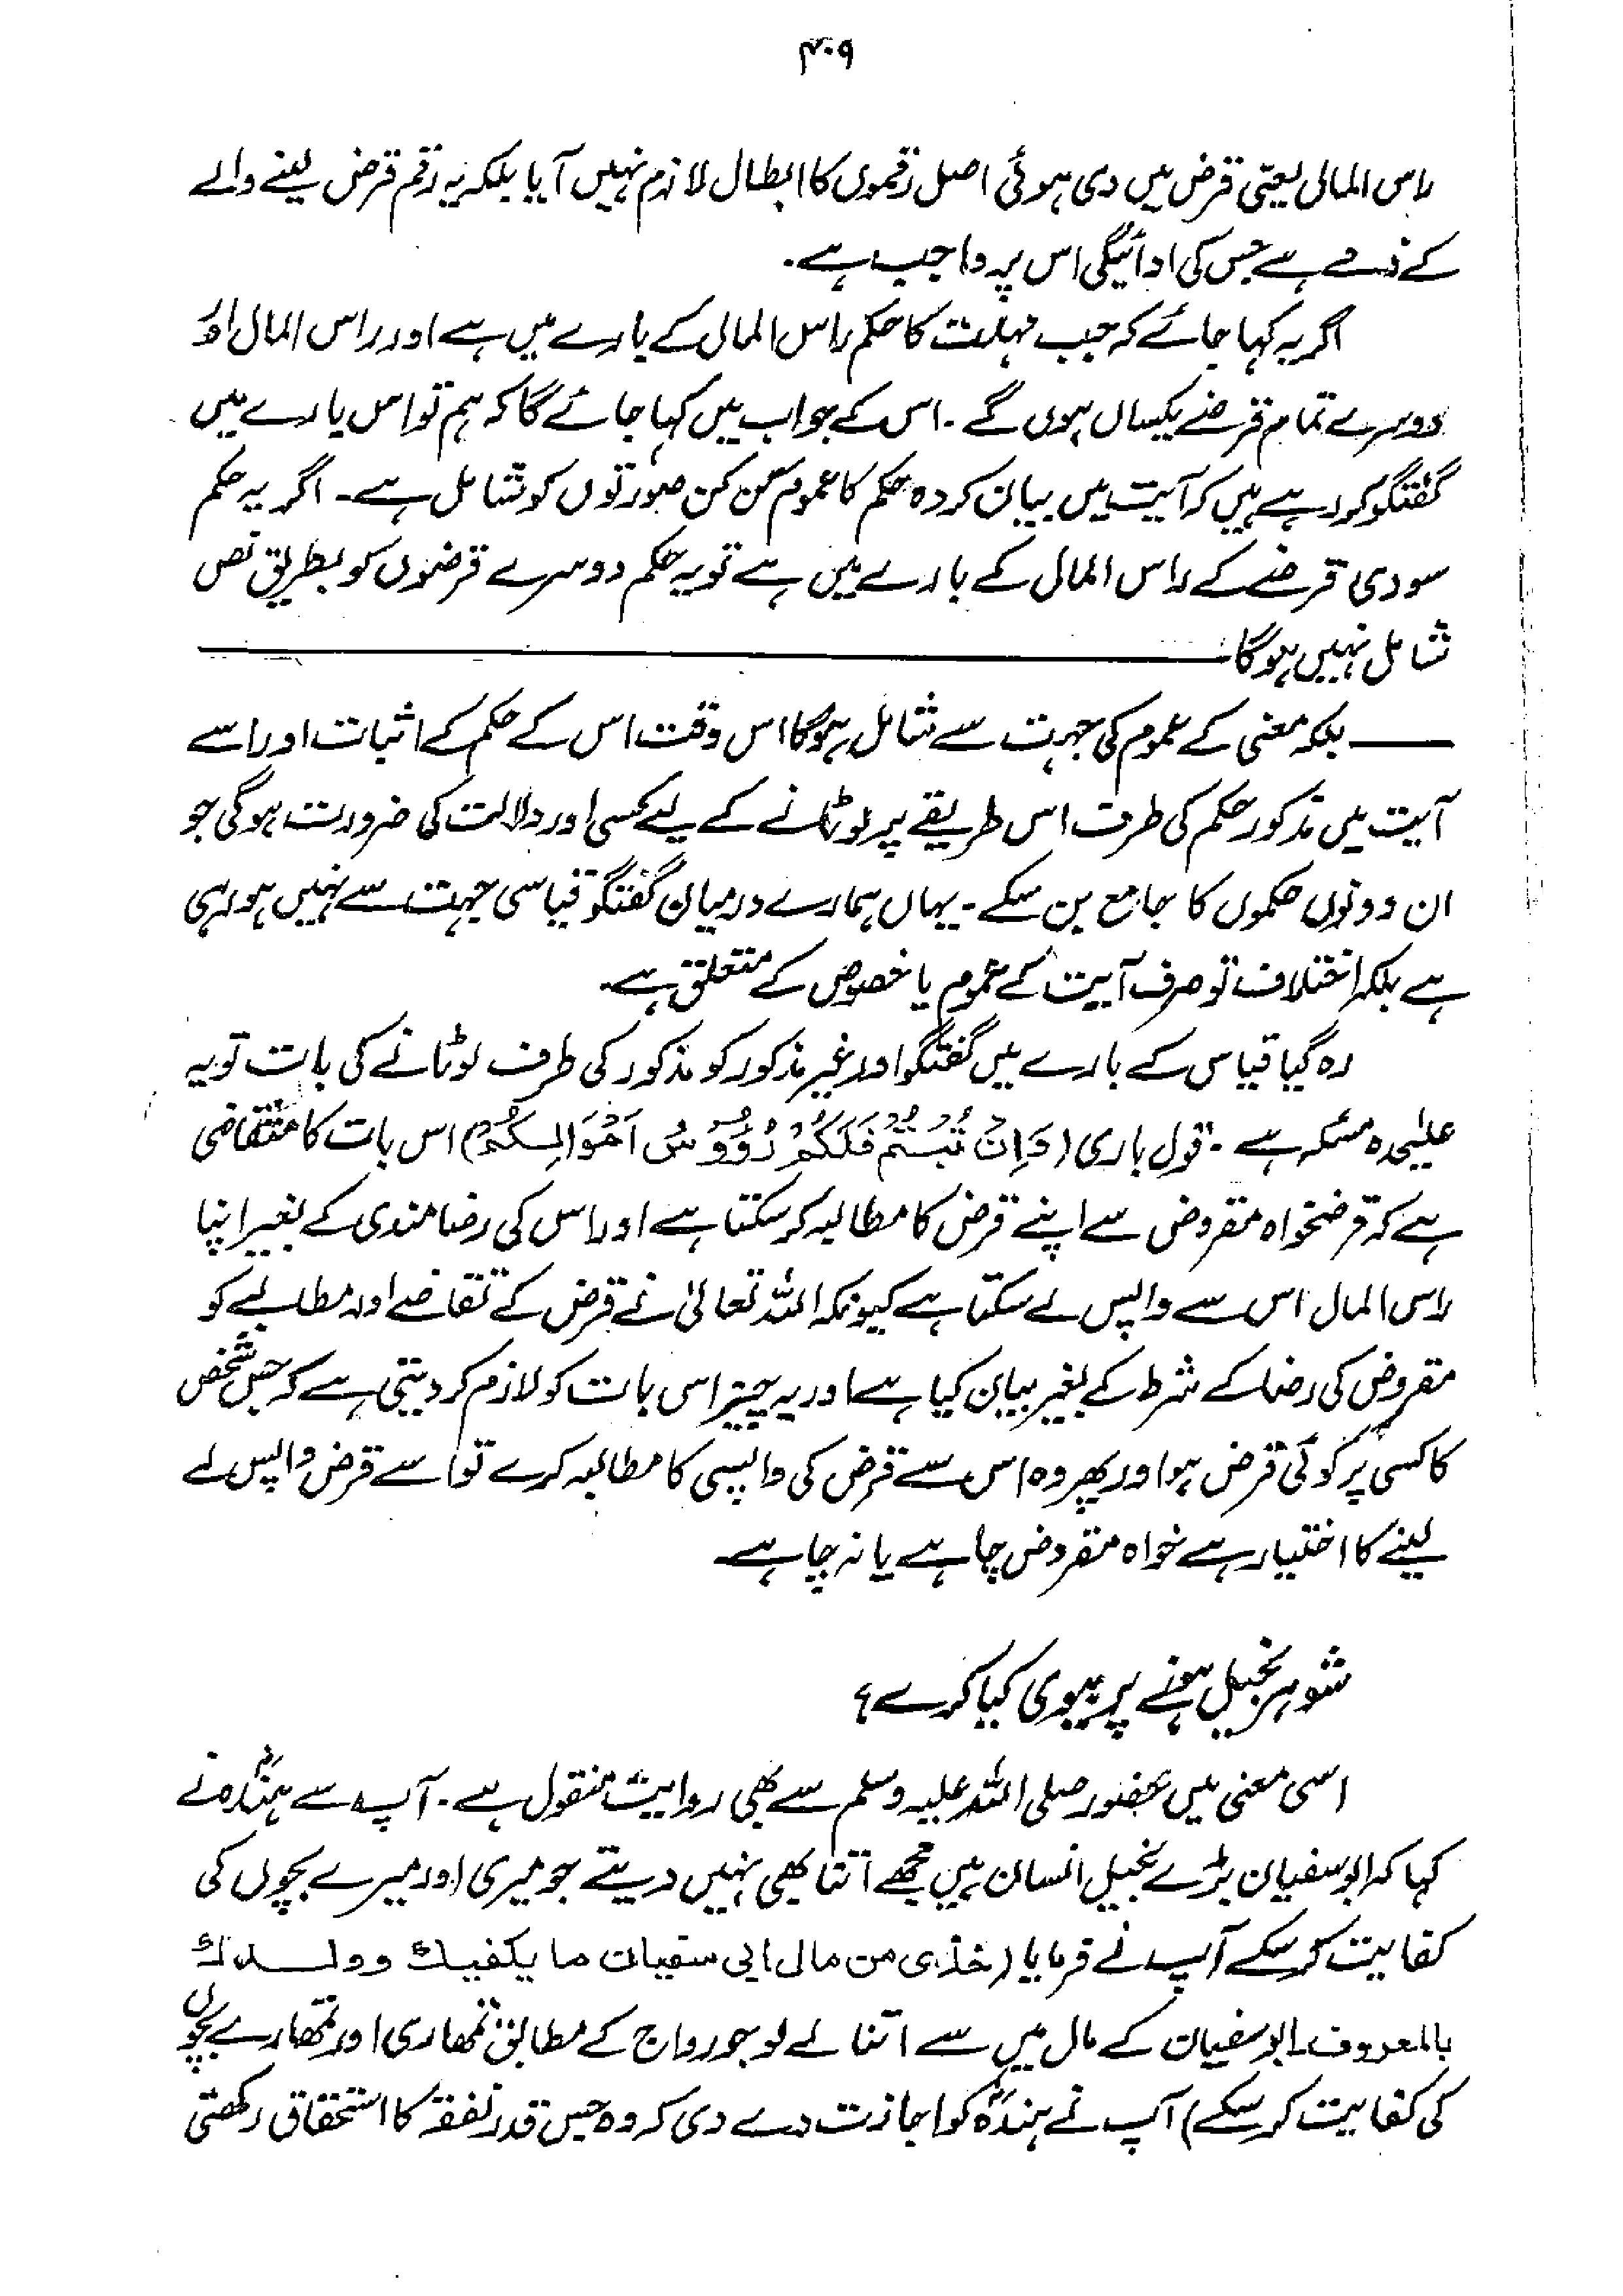 ۴۰۹
راس المال یعنی قرض میں دی ہوئی اصل رقموں کا ابطال لازم نہیں آیا بلکہ یہ رقم قرض لینے والے
کے ذمے ہے جس کی ادائیگی اس پر واجب ہے۔
اگر یہ کہا جائے کہ جب مہلت کا حکم راس المال کے بارے میں ہے اور راس المال اور
دوسرے تمام قرضے یکساں ہوں گے۔ اس کے جواب میں کہا جائے گا کہ ہم تو اس بارے میں
گفتگو کر رہے ہیں کہ آیت میں بیان کردہ حکم کا عموم کن کن صورتوں کو شامل ہے۔ اگر یہ حکم
سودی قرضے کے راس المال کے بارے میں ہے تو یہ حکم دوسرے قرضوں کو بطریق نص
شامل نہیں ہوگا
بلکہ معنی کے عموم کی جہت سے شامل ہوگا اس وقت اس کے حکم کے اثبات اور اسے
آیت میں مذکور حکم کی طرف اس طریقے پر لوٹانے کے لیے کسی اور دلالت کی ضرورت ہوگی جو
ان دونوں حکموں کا جامع بن سکے۔ یہاں ہمارے درمیان گفتگو قیاسی جہت سے نہیں ہو رہی
ہے بلکہ اختلاف تو صرف آیت کے عموم یا خصوص کے متعلق ہے۔
رہ گیا قیاس کے بارے میں گفتگو اور غیر مذکور کو مذکور کی طرف لوٹانے کی بات تو یہ
علیحدہ مسئلہ ہے۔ قول باری (وَاِنْ تُبْتُمْ فَلَكُمْ رُؤُوْسُ اَمْوَالِكُمْ) اس بات کا مقتضی
ہے کہ قرضخواہ مقروض سے اپنے قرض کا مطالبہ کر سکتا ہے اور اس کی رضامندی کے بغیر اپنا
راس المال اس سے واپس لے سکتا ہے کیونکہ اللہ تعالیٰ نے قرض کے تقاضے اور مطالبے کو
مقروض کی رضا کے شرط کے بغیر بیان کیا ہے اور یہ چیز اس بات کو لازم کر دیتی ہے کہ جس شخص
کا کسی پر کوئی قرض ہو اور پھر وہ اس سے قرض کی واپسی کا مطالبہ کرے تو اسے قرض واپس لے
لینے کا اختیار ہے خواہ مقروض چاہے یا نہ چاہے۔
شوہر بخیل ہونے پر بیوی کیا کرے؟
اسی معنی میں حضور صلی اللہ علیہ وسلم سے بھی روایت منقول ہے۔ آپ سے ہندہؓ نے
کہا کہ ابو سفیان بڑے بخیل انسان ہیں مجھے اتنا بھی نہیں دیتے جو میری اور میرے بچوں کی
کفایت کر سکے آپ نے فرمایا (خذی من مال ابی سفیان ما یکفیك و ولدك
بالمعروف ۔ ابو سفیان کے مال میں سے اتنا لے لو جو رواج کے مطابق تمھاری اور تمھارے بچوں
کی کفایت کر سکے) آپ نے ہندہؓ کو اجازت دے دی کہ وہ جس قدر نفقہ کا استحقاق رکھتی